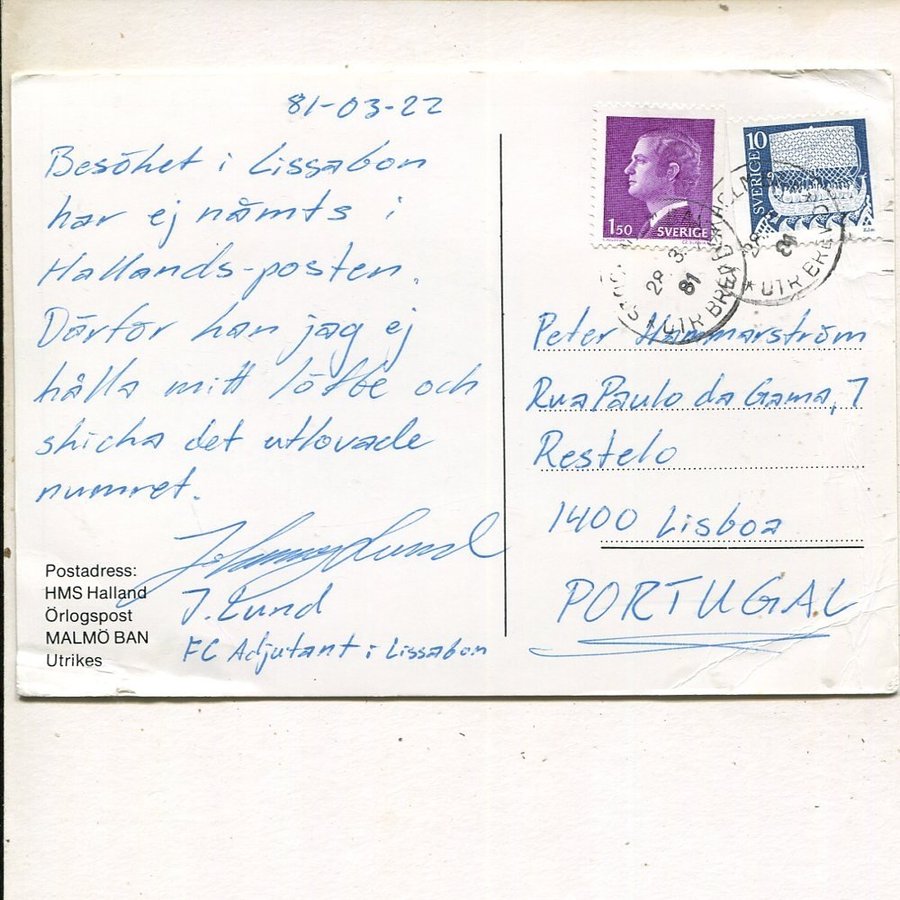 81-03-22
Besöket i Lissabon
har ej nämts i
Hallands-posten.
Därför kan jag ej
hålla mitt löfte och
skicka det utlovade
numret.
J. Lund
FC Adjutant i Lissabon
Postadress:
HMS Halland
Örlogspost
MALMÖ BAN
Utrikes
1.50 SVERIGE
10 SVERIGE
28 3 81
UTR BREV
28 81
UTR BREV
Peter Hammarström
Rua Paulo da Gama, 7
Restelo
1400 Lisboa
PORTUGAL